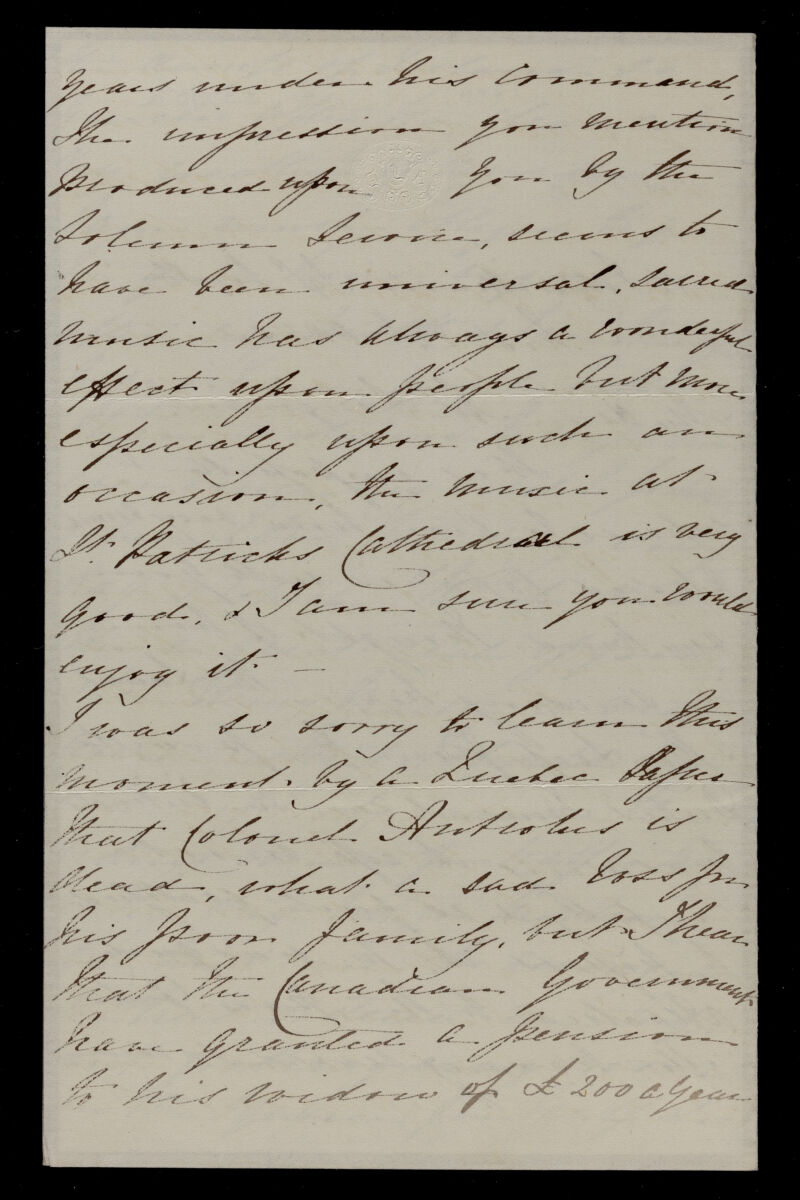 years under his command,
The impression you mention
produced upon you by the
solemn service, seems to
have been universal, sacred
music has always a wonderful
effect upon people but more
especially upon such an
occasion, the music at
St. Patricks Cathedral is very
good, & I am sure you would
enjoy it. —
I was so sorry to learn this
moment by a Quebec Paper
that Colonel Antrobus is
dead, what a sad loss for
his poor family, but I hear
that the Canadian Government
have granted a pension
to his widow of £200 a year